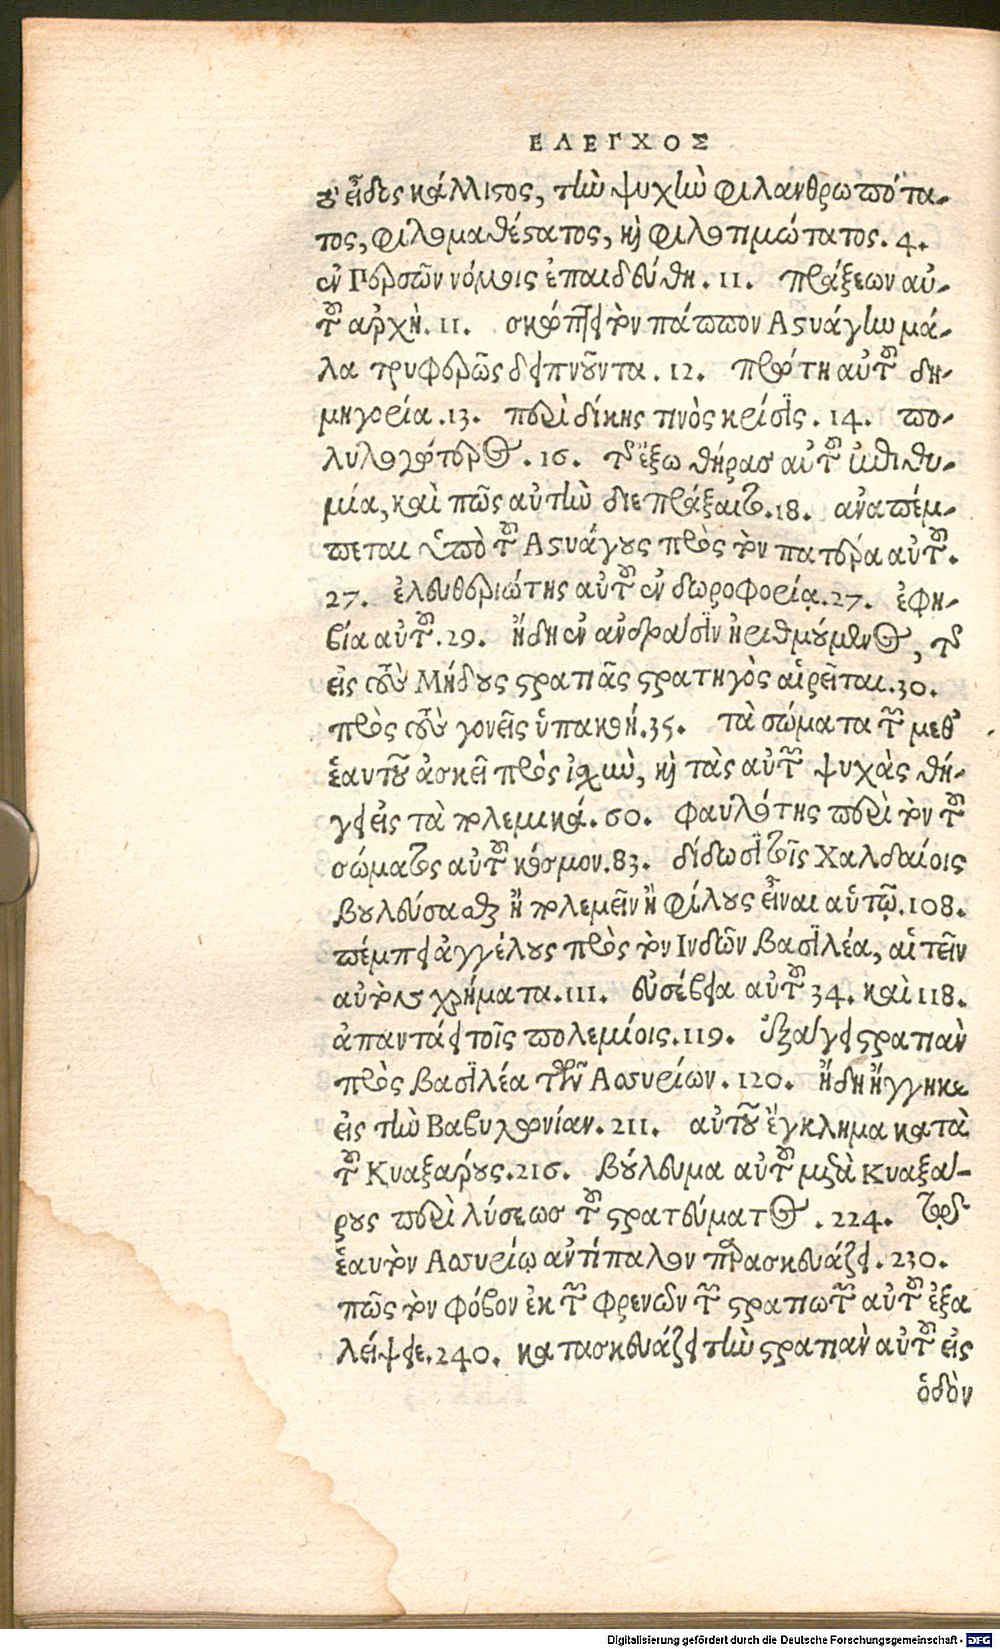 ΕΛΕΓΧΟΣ
τὸ εἶδος κάλλιστος, τὴν ψυχὴν φιλανθρωπότα-
τος, φιλομαθέστατος, καὶ φιλοτιμώτατος. 4.
ἐν Περσῶν νόμοις ἐπαιδεύθη. 11. πράξεων αὐ-
τοῦ ἀρχὴ. 11. σκώπτει τὸν πάππον Ἀστυάγην μά-
λα τρυφερῶς δειπνοῦντα. 12. πρώτη αὐτοῦ δη-
μηγορία. 13. περὶ δίκης τινὸς κρίσις. 14. πο-
λυλογώτερος. 16. τῆς ἔξω θήρας αὐτοῦ ἐπιθυ-
μία, καὶ πῶς αὐτὴν διεπράξατο. 18. ἀναπέμ-
πεται ὑπὸ τοῦ Ἀστυάγους πρὸς τὸν πατέρα αὐτοῦ.
27. ἐλευθεριότης αὐτοῦ ἐν δωροφορίᾳ. 27. ἐφη-
βία αὐτοῦ. 29. ἤδη ἐν ἀνδράσιν ἠριθμούμενος, τῆς
εἰς τοὺς Μήδους στρατιᾶς στρατηγὸς αἱρεῖται. 30.
πρὸς τοὺς γονεῖς ὑπακοή. 35. τὰ σώματα τῶν μεθ'
ἑαυτοῦ ἀσκεῖ πρὸς ἰσχὺν, καὶ τὰς αὐτῶν ψυχὰς θή-
γει εἰς τὰ πολεμικά. 60. φαυλότης περὶ τὸν τοῦ
σώματος αὐτοῦ κόσμον. 83. δίδωσι τοῖς Χαλδαίοις
βουλεύσασθαι ἢ πολεμεῖν ἢ φίλους εἶναι αὑτῷ. 108.
πέμπει ἀγγέλους πρὸς τὸν Ἰνδῶν βασιλέα, αἰτεῖν
αὐτὸν χρήματα. 111. εὐσέβεια αὐτοῦ 34. καὶ 118.
ἀπαντάει τοῖς πολεμίοις. 119. ἐξάγει στρατιὰν
πρὸς βασιλέα τῶν Ἀσσυρίων. 120. ἤδη ἤγγικε
εἰς τὴν Βαβυλωνίαν. 211. αὐτοῦ ἔγκλημα κατὰ
τοῦ Κυαξάρους. 216. βούλευμα αὐτοῦ μετὰ κυαξά-
ρους περὶ λύσεως τοῦ στρατεύματος. 224.
ἑαυτὸν Ἀσσυρίῳ ἀντίπαλον παρασκευάζει. 230.
πῶς τὸν φόβον ἐκ τῶν φρενῶν τῶν στρατιωτῶν αὐτοῦ ἐξα
λείψειε. 240. κατασκευάζει τὴν στρατιὰν αὐτοῦ εἰς
ὁδὸν
Digitalisierung gefördert durch die Deutsche Forschungsgemeinschaft - DFG